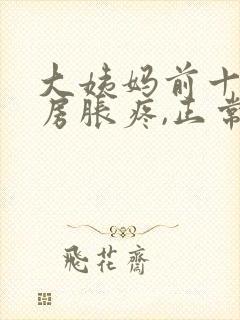 大姨妈前十
房胀疼,正常
飛花齋